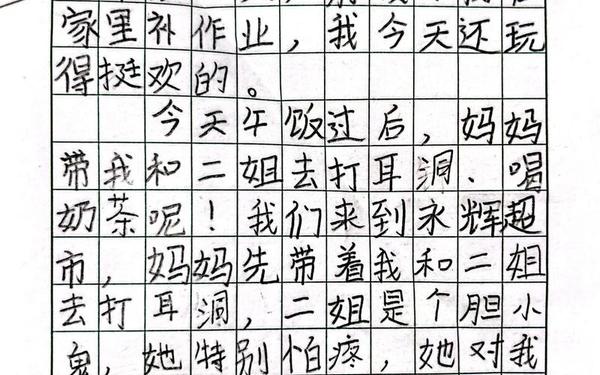 家里补作业，我今天还玩
得挺欢的。
今天午饭过后，妈妈
带我和二姐去打耳洞、喝
奶茶呢！我们来到永辉超
市，妈妈先带着我和二姐
去打耳洞，二姐是个胆小
鬼，她特别怕疼，她对我